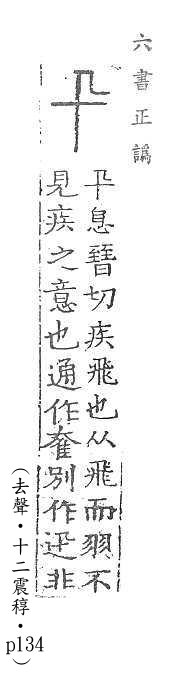 六書正譌
卂
卂息晉切疾飛也从飛而羽不
見疾之意也通作奞別作迅非
（去聲‧十二震稕‧p134）